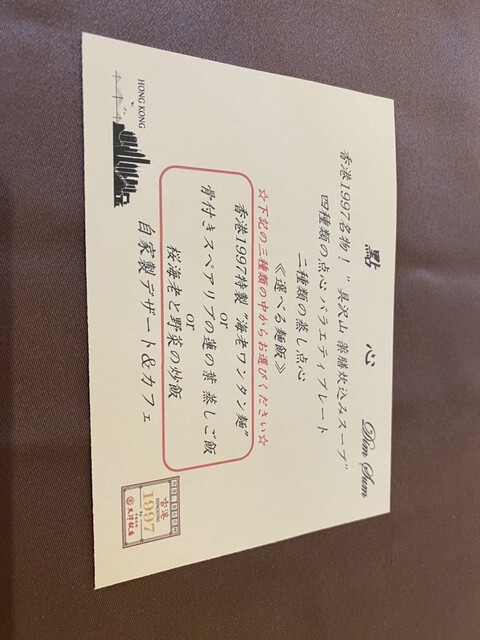 點心 Dim Sum
香港1997名物！ " 具沢山 薬膳炊込みスープ"
四種類の点心 バラエティプレート
二種類の蒸し点心
《選べる麺飯》
☆下記の三種類の中からお選びください☆
香港1997特製 "海老ワンタン麺"
or
骨付きスペアリブの蓮の葉 蒸しご飯
or
桜海老と野菜の炒飯
自家製デザート&カフェ
HONG KONG
香港
1997